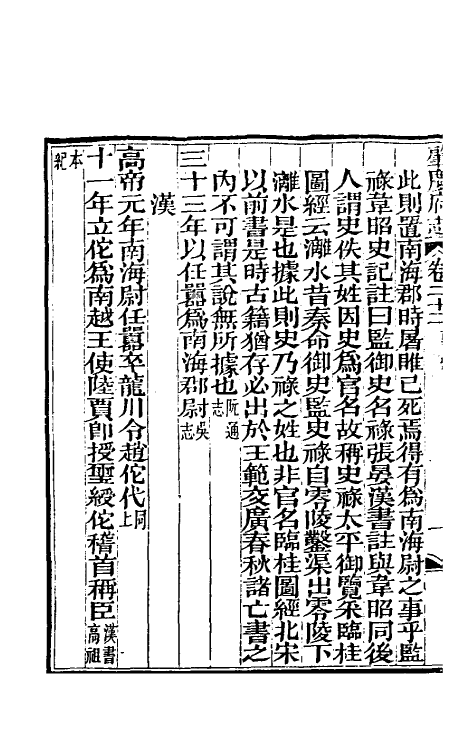 肇慶府志 卷二十二
此則置南海郡時屠睢已死焉得有為南海尉之事乎監
祿韋昭史記註曰監御史名祿張晏漢書註與韋昭同後
人謂史佚其姓因史為官名故稱史祿太平御覽釆臨桂
圖經云灕水昔秦命御史監史祿自零陵鑿渠出零陵下
灕水是也據此則史乃祿之姓也非官名臨桂圖經北宋
以前書是時古籍猶存必出於王範交廣春秋諸亡書之
內不可謂其說無所據也阮通志
三十三年以任囂為南海郡尉吳志
漢
高帝元年南海尉任囂卒龍川令趙佗代同上
十一年立佗為南越王使陸賈卽授璽綬佗稽首稱臣漢書高祖
本紀